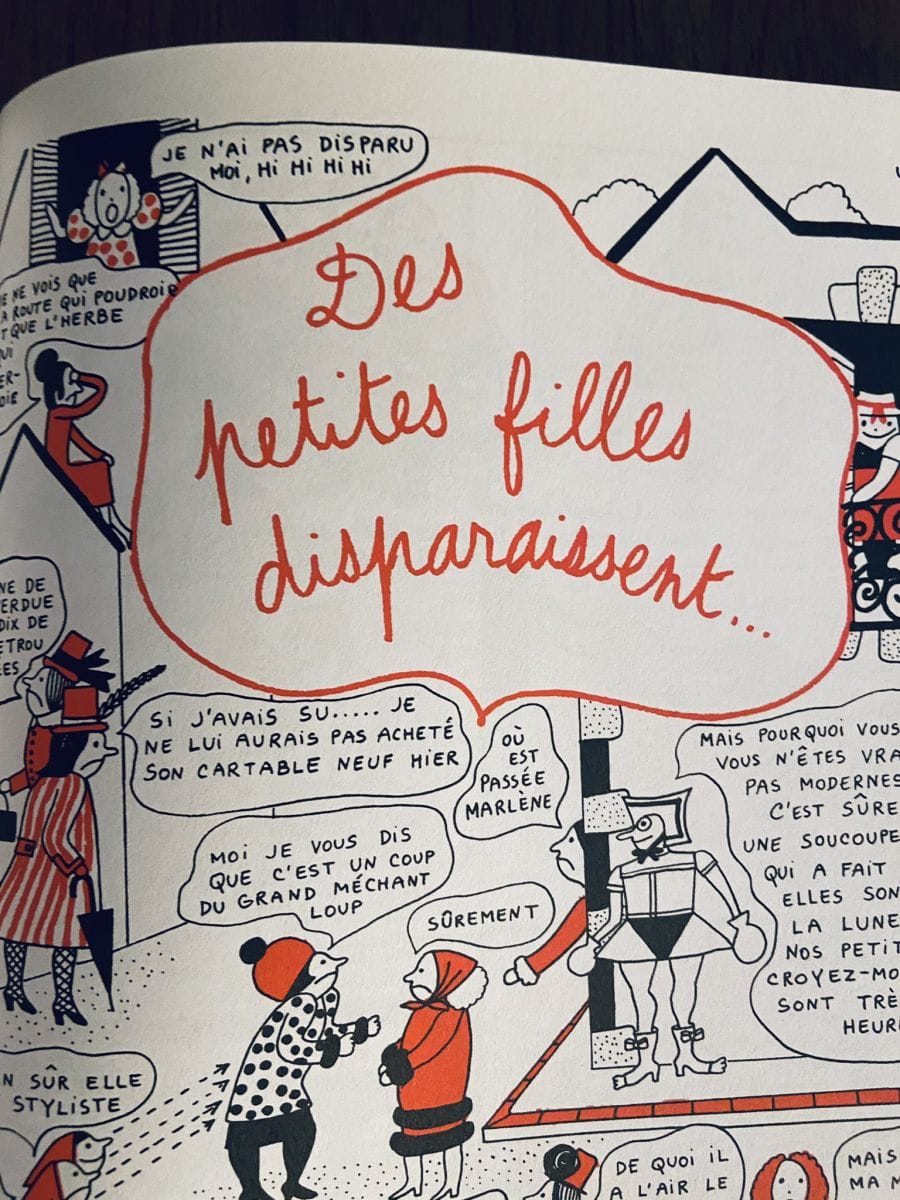 JE N'AI PAS DISPARU
MOI, HI HI HI HI
NE VOIS QUE
ROUTE QUI POUDROIE
QUE L'HERBE
Des
petites filles
disparaissent...
DE
DE
SI J'AVAIS SU..... JE
NE LUI AURAIS PAS ACHETÉ
SON CARTABLE NEUF HIER
OÙ
EST
PASSÉE
MARLÈNE
MAIS POURQUOI VOUS
VOUS N'ÊTES
PAS MODERNES
C'EST
UNE SOUCOUPE
QUI A FAIT
ELLES
LA LUNE
NOS
SONT
MOI JE VOUS DIS
QUE C'EST UN COUP
DU GRAND MÉCHANT
LOUP
SÛREMENT
SÛR ELLE
STYLISTE
DE QUOI IL
A L'AIR LE
MAIS
MA